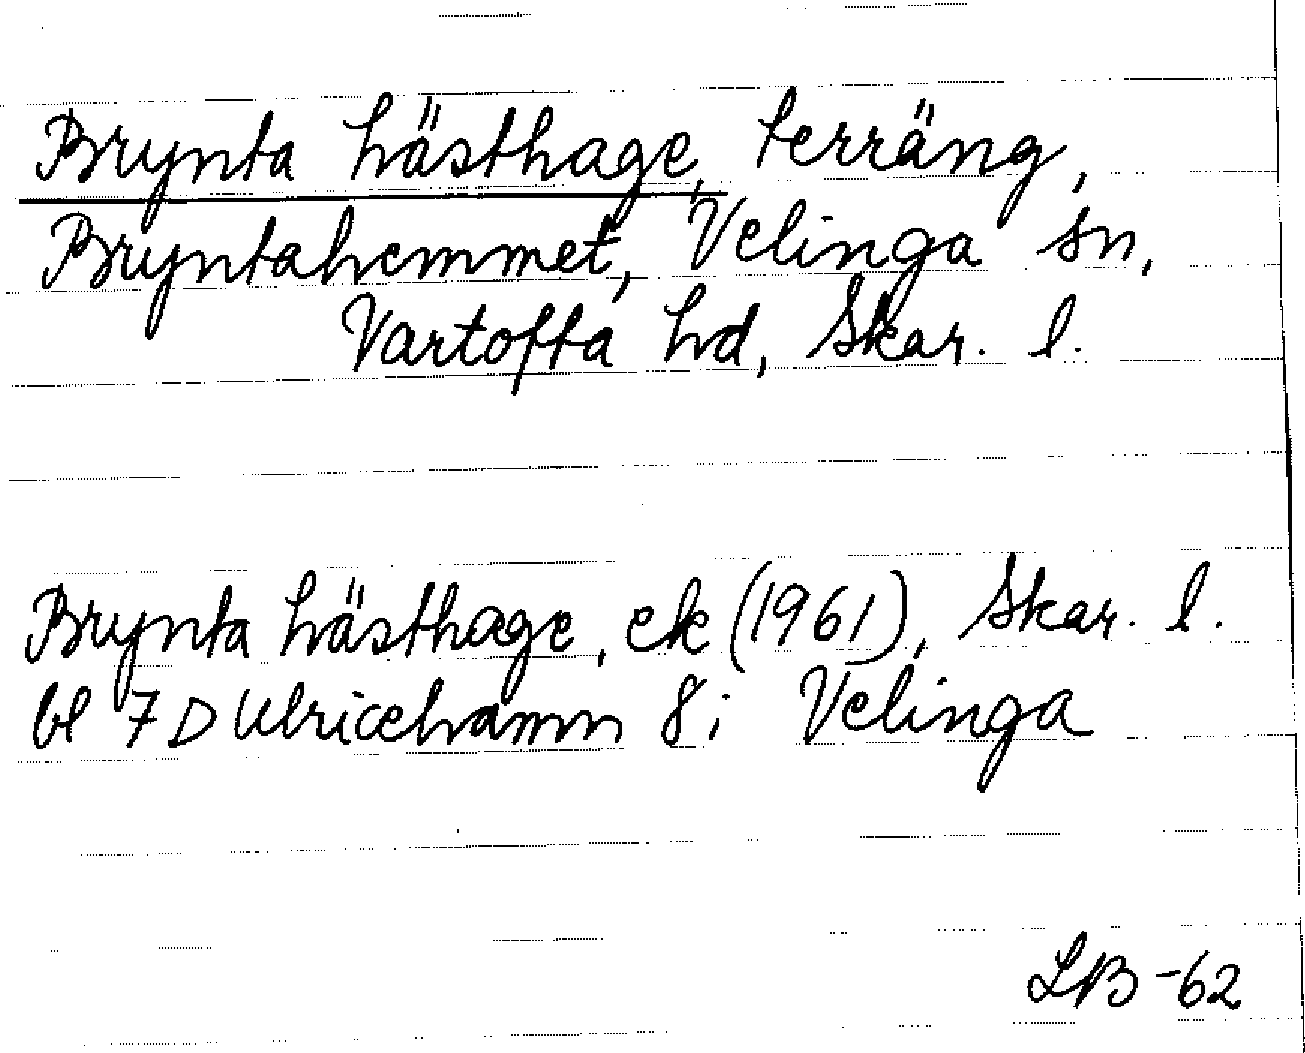 Brynta hästhage, terräng,
Bryntahemmet, Velinga sn,
Vartofta hd, Skar. l.
Brynta hästhage, ek (1961), Skar. l.
bl 7 D Ulricehamn 8 i Velinga
LB -62